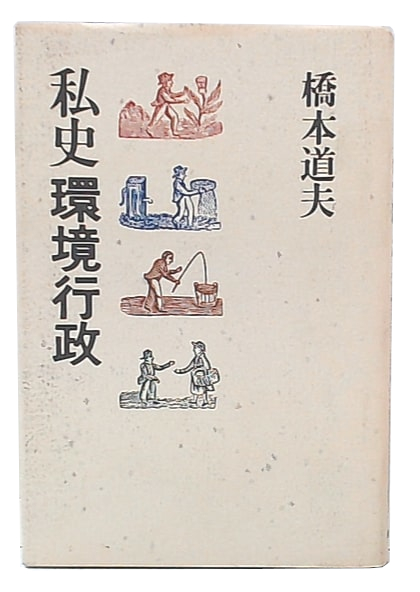 橋本道夫
私史環境行政